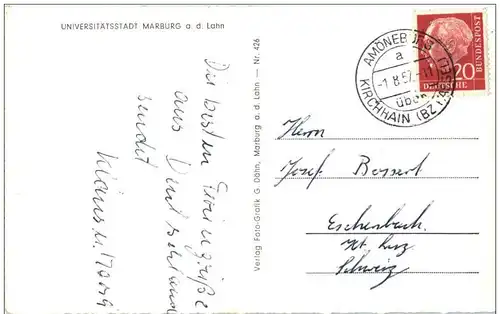 UNIVERSITÄTSSTADT MARBURG a. d. Lahn
Die besten Feriengrüße
aus Deutschland
sendet
Klaus u.
Verlag Foto-Grafik G. Dähn, Marburg a. d. Lahn — Nr. 426
AMÖNEBURG
a
-1.8.57.-11
über
KIRCHHAIN (BZ KASSEL)
20
DEUTSCHE
BUNDESPOST
Herrn
Josef Bossert
Eschenbach
Kt Luz
Schweiz